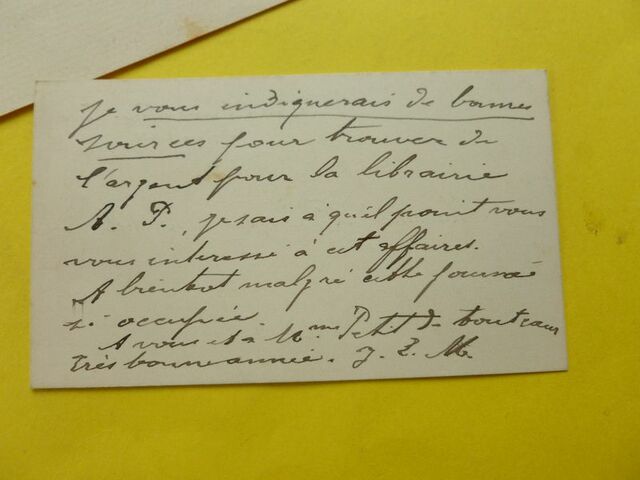 je vous indiquerais de bonnes
sources pour trouver de
l'argent pour la librairie
A. P., je sais à quel point vous
vous interesse à cet affaires.
A bientot malgré cette journée
si occupée.
A vous et à Mme Petit de
très bonne année. J. L. M.